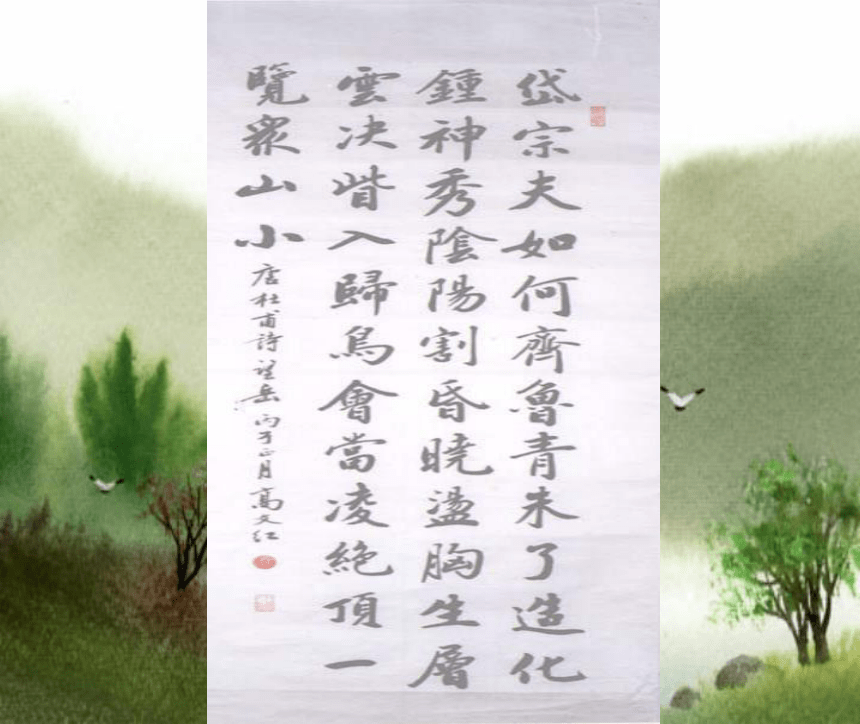 岱宗夫如何齊魯青未了造化
鍾神秀陰陽割昏曉盪胸生層
雲决眥入歸鳥會當凌絶頂一
覽衆山小 唐杜甫詩望岳 丙子正月高文红